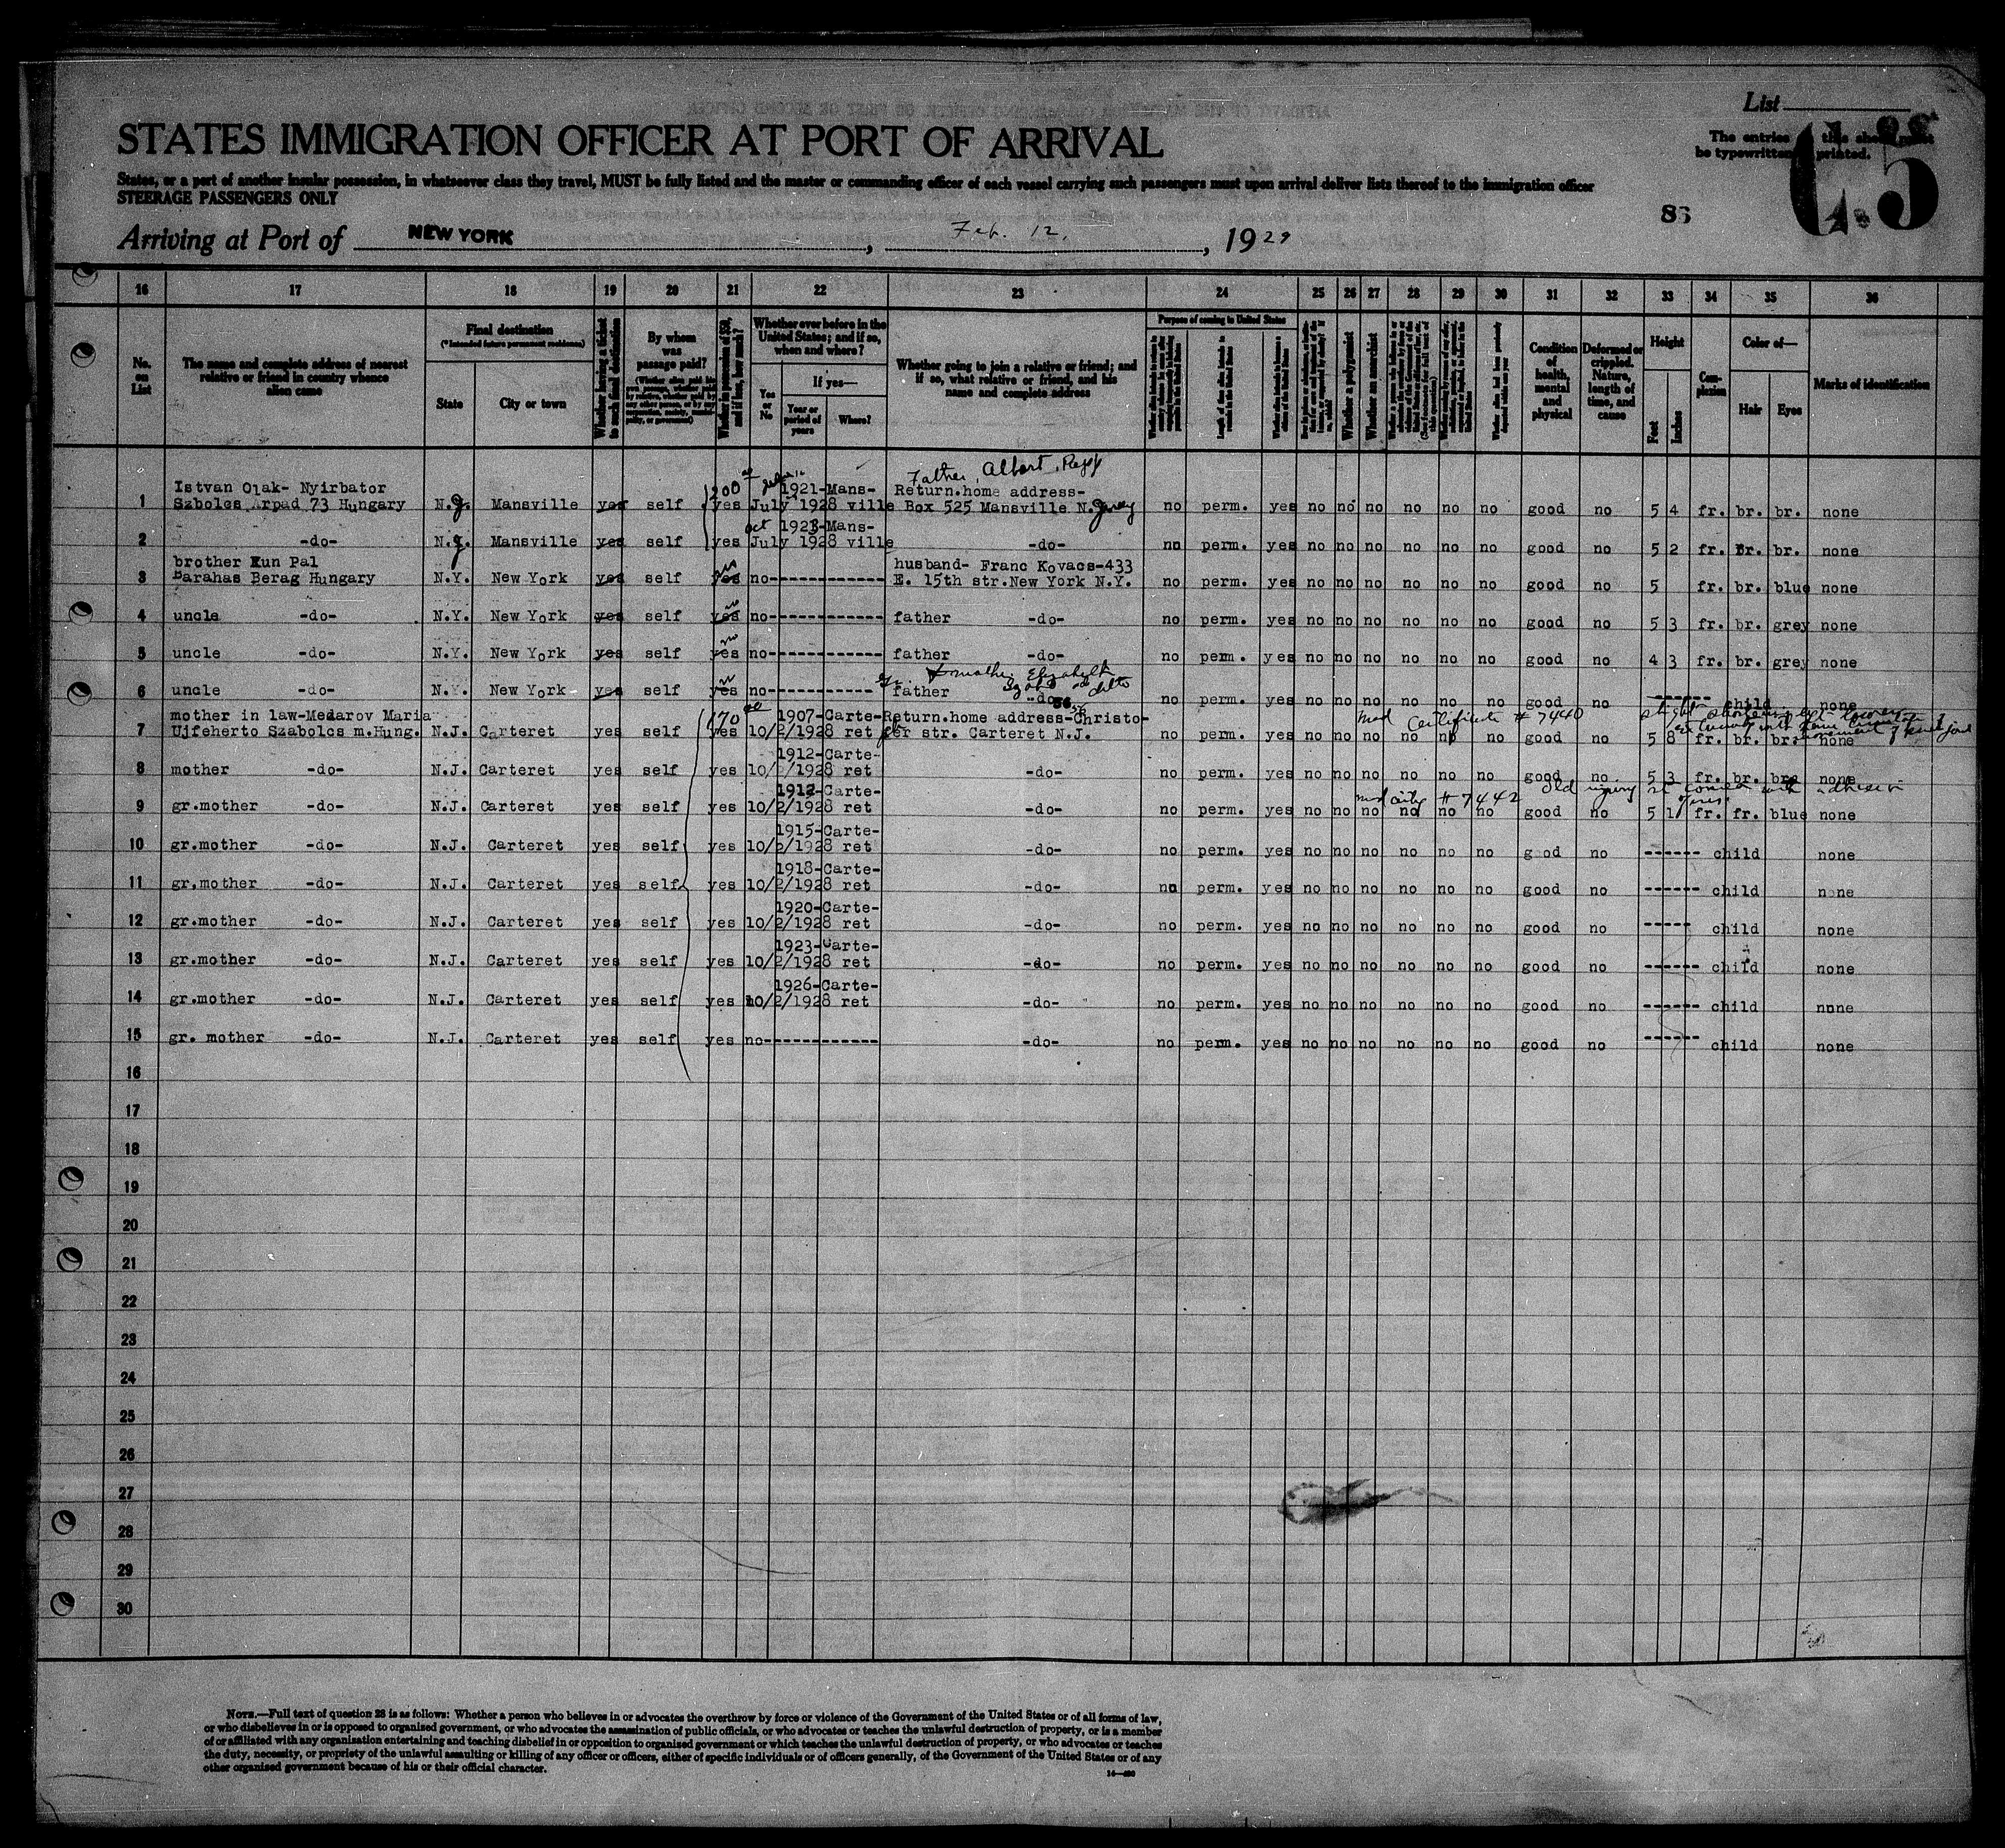 List
STATES IMMIGRATION OFFICER AT PORT OF ARRIVAL
The entries this sheet must
be typewritten printed.
States, or a part of another insular possession, in whatsoever class they travel, MUST be fully listed and the master or commanding officer of each vessel carrying such passengers must upon arrival deliver lists thereof to the immigration officer
STEERAGE PASSENGERS ONLY
Arriving at Port of NEW YORK, Feb. 12, 1929
16 17 18 19 20 21 22 23 24 25 26 27 28 29 30 31 32 33 34 35 36
No. on List
The name and complete address of nearest relative or friend in country whence alien came
Final destination
(*Intended future permanent residence)
State
City or town
Whether having a ticket to such final destination
By whom was passage paid?
Whether in possession of $50, and if less, how much?
Whether ever before in the United States; and if so, when and where?
Yes or No
If yes—
Year or period of years
Where?
Whether going to join a relative or friend; and if so, what relative or friend, and his name and complete address
Purpose of coming to United States
Whether a polygamist
Whether an anarchist
Condition of health, mental and physical
Deformed or crippled. Nature, length of time, and cause
Height
Feet
Inches
Complexion
Color of—
Hair
Eyes
Marks of identification
Father, Albert,
1 Istvan Olak- Nyirbator 1921-Mans- Return.home address-
Szbolcs Arpad 73 Hungary N.J. Mansville yes self yes July 1928 ville Box 525 Mansville N. Jersey no perm. yes no no no no no no good no 5 4 fr. br. br. none
Oct 1923-Mans-
2 -do- N.J. Mansville yes self yes July 1928 ville -do- no perm. yes no no no no no no good no 5 2 fr. br. br. none
3 brother Kun Pal husband- Franc Kovacs-433
Barahas Berag Hungary N.Y. New York yes self yes no E. 15th str.New York N.Y. no perm. yes no no no no no no good no 5 fr. br. blue none
4 uncle -do- N.Y. New York yes self yes no father -do- no perm. yes no no no no no no good no 5 3 fr. br. grey none
5 uncle -do- N.Y. New York yes self yes no father -do- no perm. yes no no no no no no good no 4 3 fr. br. grey none
mother Elizabeth
6 uncle -do- N.Y. New York yes self yes no father -do- no perm. yes no no no no no no good no ------ child none
7 mother in law-Medarov Maria 170 1907-Carte- Return.home address- Christo- med Certificate # 7440 slight shortening left lower
Ujfeherto Szabolcs m.Hung. N.J. Carteret yes self yes 10/2/1928 ret fer str. Carteret N.J. no perm. yes no no no no no no good no 5 8 fr. br. br. none
1912-Carte-
8 mother -do- N.J. Carteret yes self yes 10/2/1928 ret -do- no perm. yes no no no no no no good no 5 3 fr. br. br. none
1912-Carte- # 7442 old injury
9 gr.mother -do- N.J. Carteret yes self yes 10/2/1928 ret -do- no perm. yes no no no no no no good no 5 1 fr. fr. blue none
1915-Carte-
10 gr.mother -do- N.J. Carteret yes self yes 10/2/1928 ret -do- no perm. yes no no no no no no good no ------ child none
1918-Carte-
11 gr.mother -do- N.J. Carteret yes self yes 10/2/1928 ret -do- no perm. yes no no no no no no good no ------ child none
1920-Carte-
12 gr.mother -do- N.J. Carteret yes self yes 10/2/1928 ret -do- no perm. yes no no no no no no good no ----- child none
1923-Carte-
13 gr.mother -do- N.J. Carteret yes self yes 10/2/1928 ret -do- no perm. yes no no no no no no good no ------ child none
1926-Carte-
14 gr.mother -do- N.J. Carteret yes self yes 10/2/1928 ret -do- no perm. yes no no no no no no good no ------ child none
15 gr. mother -do- N.J. Carteret yes self yes no -do- no perm. yes no no no no no no good no ------ child none
16
17
18
19
20
21
22
23
24
25
26
27
28
29
30
NOTE.—Full text of question 28 is as follows: Whether a person who believes in or advocates the overthrow by force or violence of the Government of the United States or of all forms of law,
or who disbelieves in or is opposed to organised government, or who advocates the assassination of public officials, or who advocates or teaches the unlawful destruction of property, or is a member
of or affiliated with any organisation entertaining and teaching disbelief in or opposition to organised government or which teaches the unlawful destruction of property, or who advocates or teaches
the duty, necessity, or propriety of the unlawful assaulting or killing of any officer or officers, either of specific individuals or of officers generally, of the Government of the United States or of any
other organised government because of his or their official character.